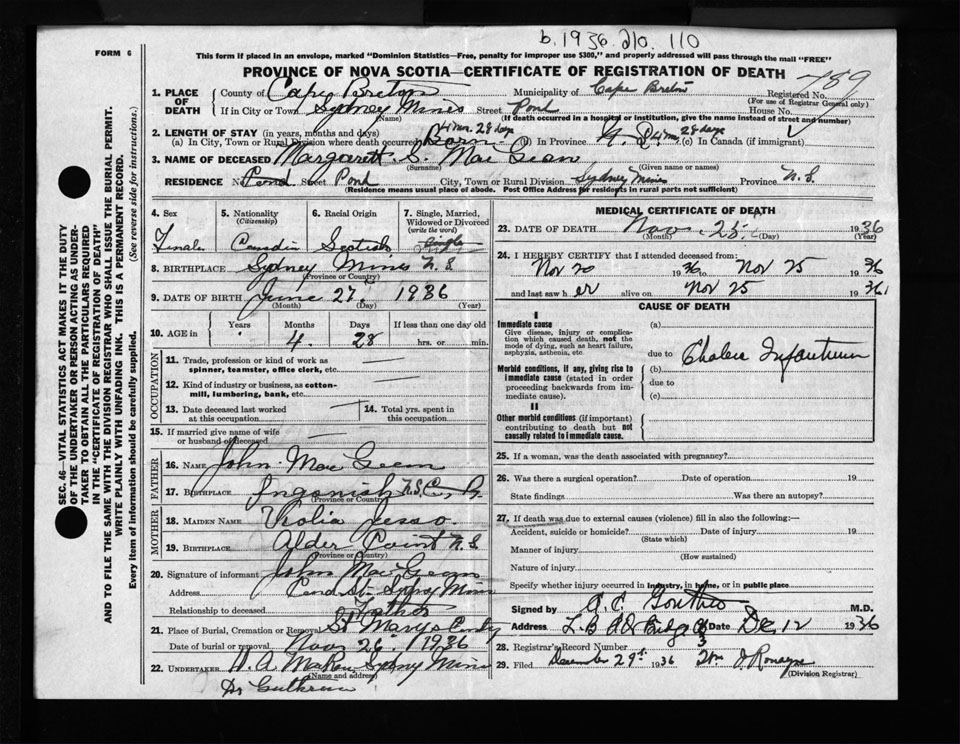 b. 1936. 210. 110
FORM 6
This form if placed in an envelope, marked "Dominion Statistics—Free, penalty for improper use $300," and properly addressed will pass through the mail "FREE"
PROVINCE OF NOVA SCOTIA—CERTIFICATE OF REGISTRATION OF DEATH
789
1. PLACE OF DEATH County of Cape Breton Municipality of Cape Breton Registered No.
(For use of Registrar General only)
If in City or Town Sydney Mines Street Pond House No.
(Name) (If death occurred in a hospital or institution, give the name instead of street and number)
2. LENGTH OF STAY (in years, months and days) 4 m. 28 days
(a) In City, Town or Rural Division where death occurred Born (b) In Province N.S. 4 m. 28 days (c) In Canada (if immigrant)
3. NAME OF DECEASED Margarett. S. Mac Gean
(Surname) (Given name or names)
RESIDENCE No. Pond Street Pond City, Town or Rural Division Sydney Mines Province N.S.
(Residence means usual place of abode. Post Office Address for residents in rural parts not sufficient)
4. Sex 5. Nationality (Citizenship) 6. Racial Origin 7. Single, Married, Widowed or Divorced (write the word)
Female Canadin Scotish Single
8. BIRTHPLACE Sydney Mines N.S.
(Province or Country)
9. DATE OF BIRTH June 27, 1936
(Month) (Day) (Year)
10. AGE in Years Months Days If less than one day old
4. 28 hrs. or min.
OCCUPATION
11. Trade, profession or kind of work as spinner, teamster, office clerk, etc.
12. Kind of industry or business, as cotton-mill, lumbering, bank, etc.
13. Date deceased last worked at this occupation 14. Total yrs. spent in this occupation
15. If married give name of wife or husband of deceased
FATHER
16. NAME John Mac Gean
17. BIRTHPLACE Ingonish N.S. C.B.
(Province or Country)
MOTHER
18. MAIDEN NAME Violia Jesso.
19. BIRTHPLACE Alder Point N.S.
(Province or Country)
20. Signature of informant John Mac Gean
Address Pond St. Sydney Mines
Relationship to deceased Father
21. Place of Burial, Cremation or Removal St Marys
Date of burial or removal Nov 26, 1936
22. UNDERTAKER Sydney Mines
(Name and address)
Dr
MEDICAL CERTIFICATE OF DEATH
23. DATE OF DEATH Nov. 25 1936
(Month) (Day) (Year)
24. I HEREBY CERTIFY that I attended deceased from:
Nov 20 1936 to Nov 25 1936
and last saw her alive on Nov 25 1936
CAUSE OF DEATH
I
Immediate cause (a)
Give disease, injury or complication which caused death, not the mode of dying, such as heart failure, asphyxia, asthenia, etc
due to Cholera Infantum
Morbid conditions, if any, giving rise to immediate cause (stated in order proceeding backwards from immediate cause).
(b)
due to
(c)
II
Other morbid conditions (if important) contributing to death but not causally related to immediate cause.
25. If a woman, was the death associated with pregnancy?
26. Was there a surgical operation? Date of operation 19
State findings Was there an autopsy?
27. If death was due to external causes (violence) fill in also the following:—
Accident, suicide or homicide? Date of injury 19
(State which)
Manner of injury
(How sustained)
Nature of injury
Specify whether injury occurred in industry, in home, or in public place
Signed by M.D.
Address Date Dec 12 1936
28. Registrar's Record Number
29. Filed December 29th 1936
(Division Registrar)
SEC. 46—VITAL STATISTICS ACT MAKES IT THE DUTY
OF THE UNDERTAKER OR PERSON ACTING AS UNDER-
TAKER TO OBTAIN ALL THE PARTICULARS REQUIRED
IN THE "CERTIFICATE OF REGISTRATION OF DEATH"
AND TO FILE THE SAME WITH THE DIVISION REGISTRAR WHO SHALL ISSUE THE BURIAL PERMIT.
WRITE PLAINLY WITH UNFADING INK. THIS IS A PERMANENT RECORD.
Every item of information should be carefully supplied. (See reverse side for instructions.)